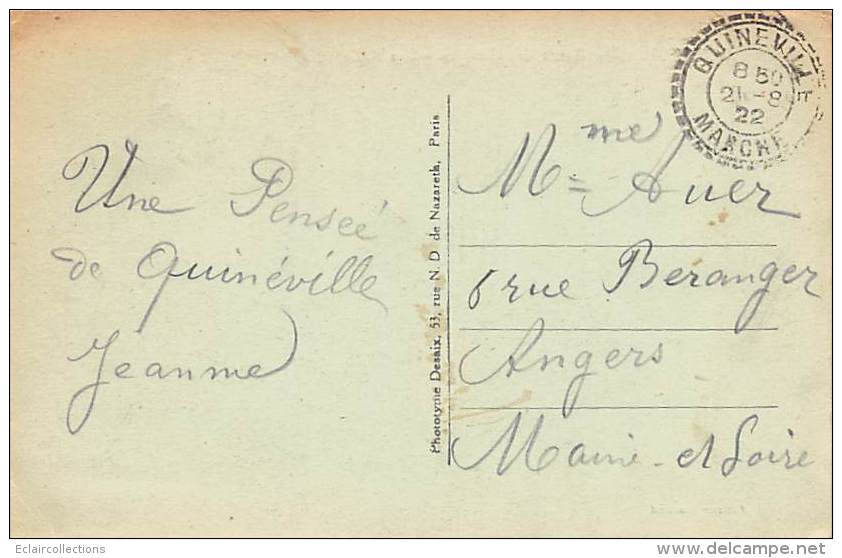 Une Penseé
de Quinéville
Jeanne
Phototypie Desaix, 53, rue N. D de Nazareth, Paris
QUINEVILLE
8 50
21 -8
22
MANCHE
Mme Auer
6 rue Beranger
Angers
Maine-et Loire
Eclaircollections
www.delcampe.net